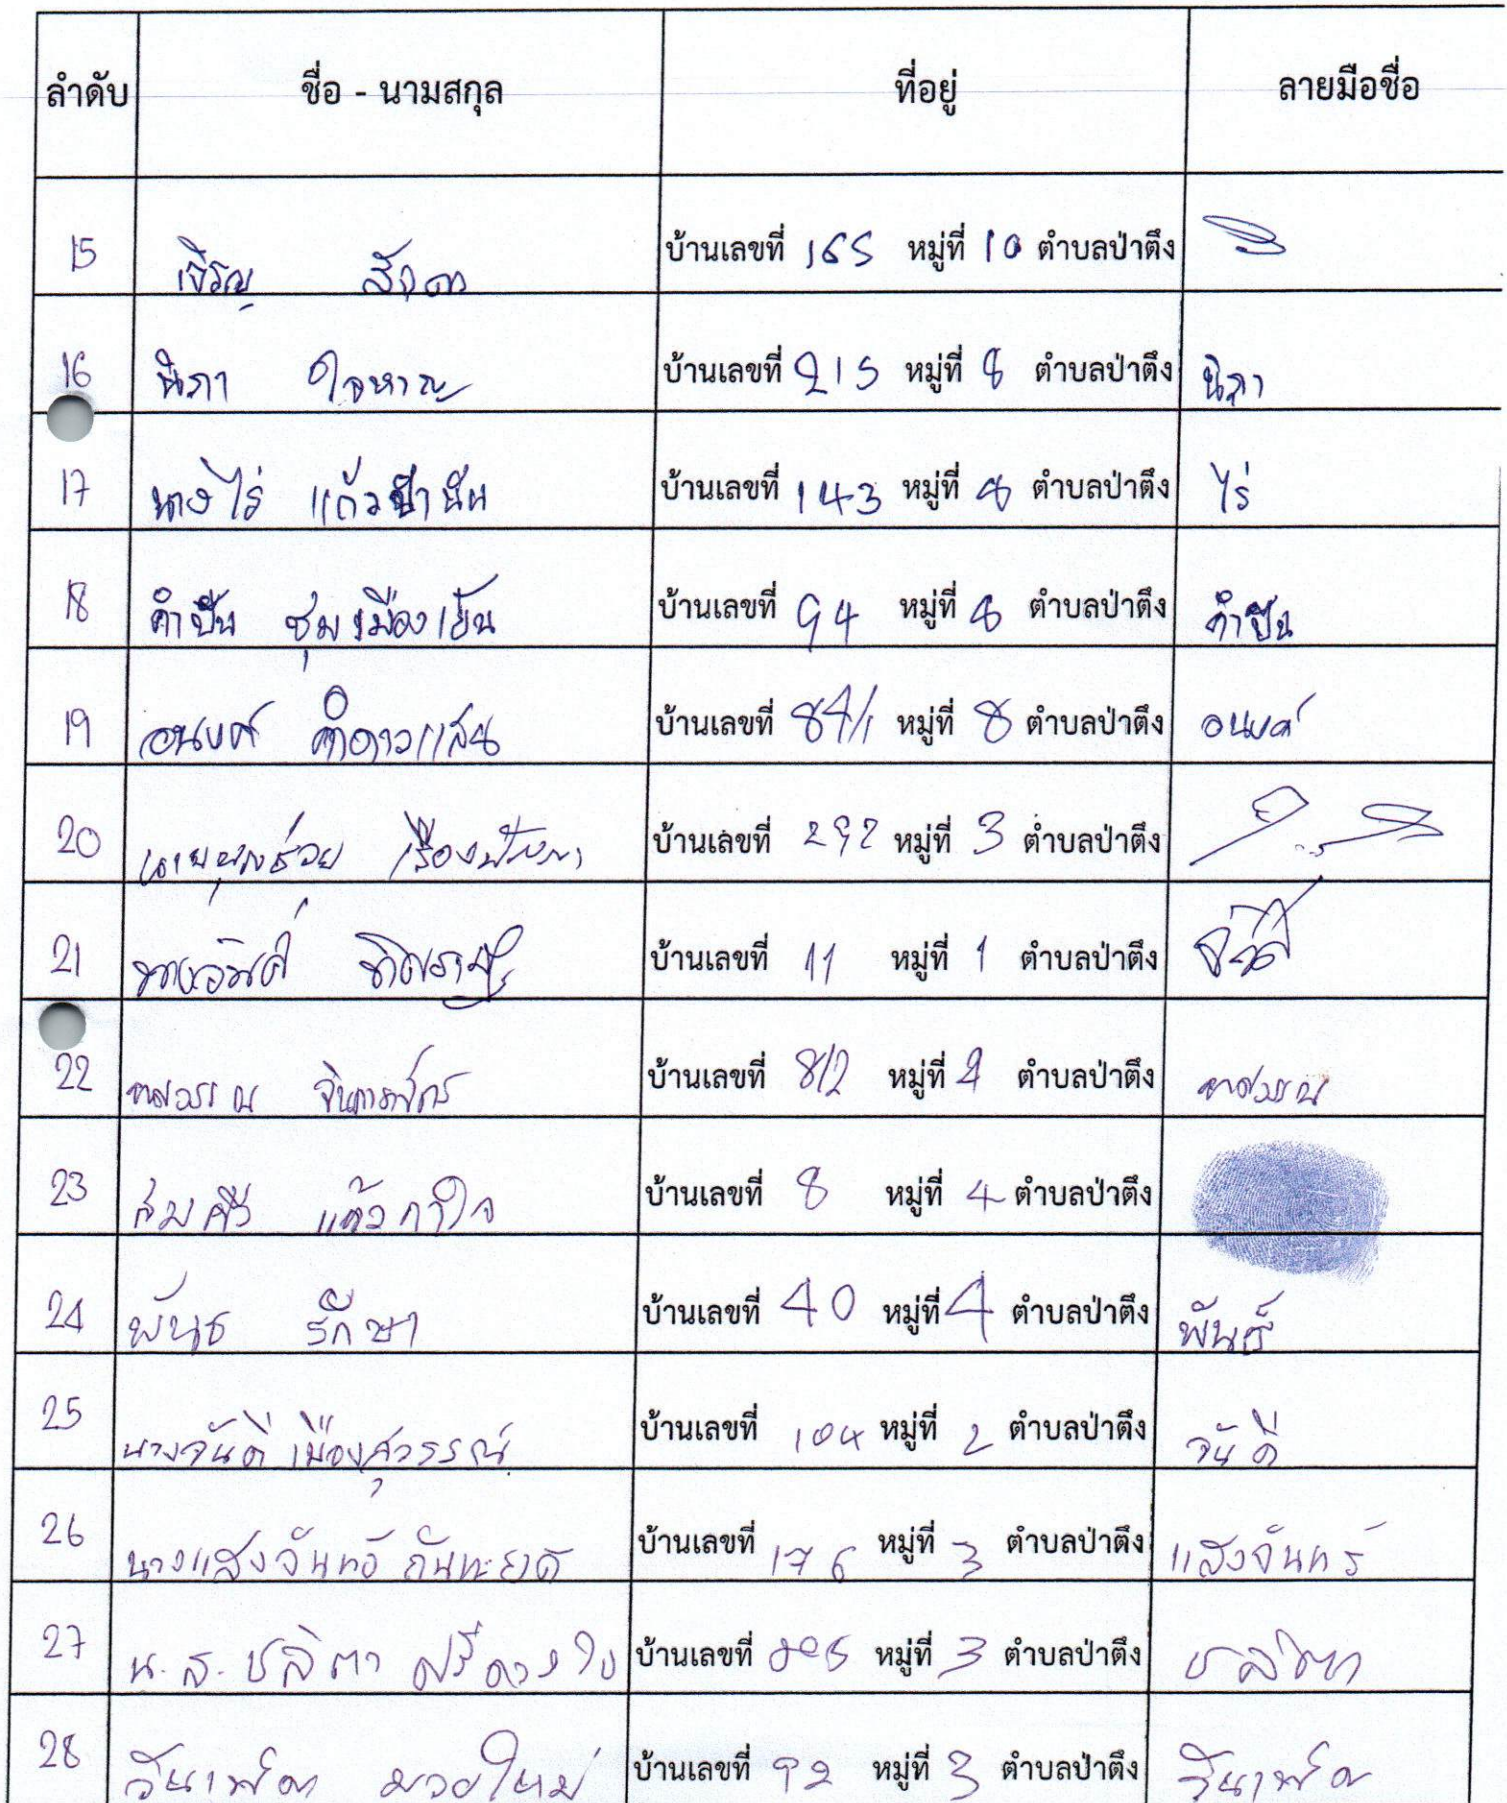 ลำดับ ชื่อ - นามสกุล ที่อยู่ ลายมือชื่อ
15 เจริญ บ้านเลขที่ 165 หมู่ที่ 10 ตำบลป่าตึง
16 นิภา ใจหาญ บ้านเลขที่ 215 หมู่ที่ 8 ตำบลป่าตึง นิภา
17 นางไร่ แก้วป่านัน บ้านเลขที่ 143 หมู่ที่ 8 ตำบลป่าตึง ไร่
18 คำปัน ชุ่มเมืองเย็น บ้านเลขที่ 94 หมู่ที่ 8 ตำบลป่าตึง คำปัน
19 คำดาวแสน บ้านเลขที่ 84/1 หมู่ที่ 8 ตำบลป่าตึง
20 นายบุญช่วย บ้านเลขที่ 292 หมู่ที่ 3 ตำบลป่าตึง
21 บ้านเลขที่ 11 หมู่ที่ 1 ตำบลป่าตึง
22 บ้านเลขที่ 8/2 หมู่ที่ ตำบลป่าตึง
23 สมศรี แก้วกำใจ บ้านเลขที่ 8 หมู่ที่ 4 ตำบลป่าตึง
24 พันธ รักษา บ้านเลขที่ 40 หมู่ที่ 4 ตำบลป่าตึง พันธ์
25 นางจันดี เมืองสุวรรณ์ บ้านเลขที่ 104 หมู่ที่ 2 ตำบลป่าตึง จันดี
26 นางแสงจันทร์ กันทะยศ บ้านเลขที่ 176 หมู่ที่ 3 ตำบลป่าตึง แสงจันทร์
27 น.ส. ชลิตา ศรีดวงใจ บ้านเลขที่ หมู่ที่ 3 ตำบลป่าตึง ชลิตา
28 วันเพ็ญ มวยใหม่ บ้านเลขที่ 92 หมู่ที่ 3 ตำบลป่าตึง วันเพ็ญ